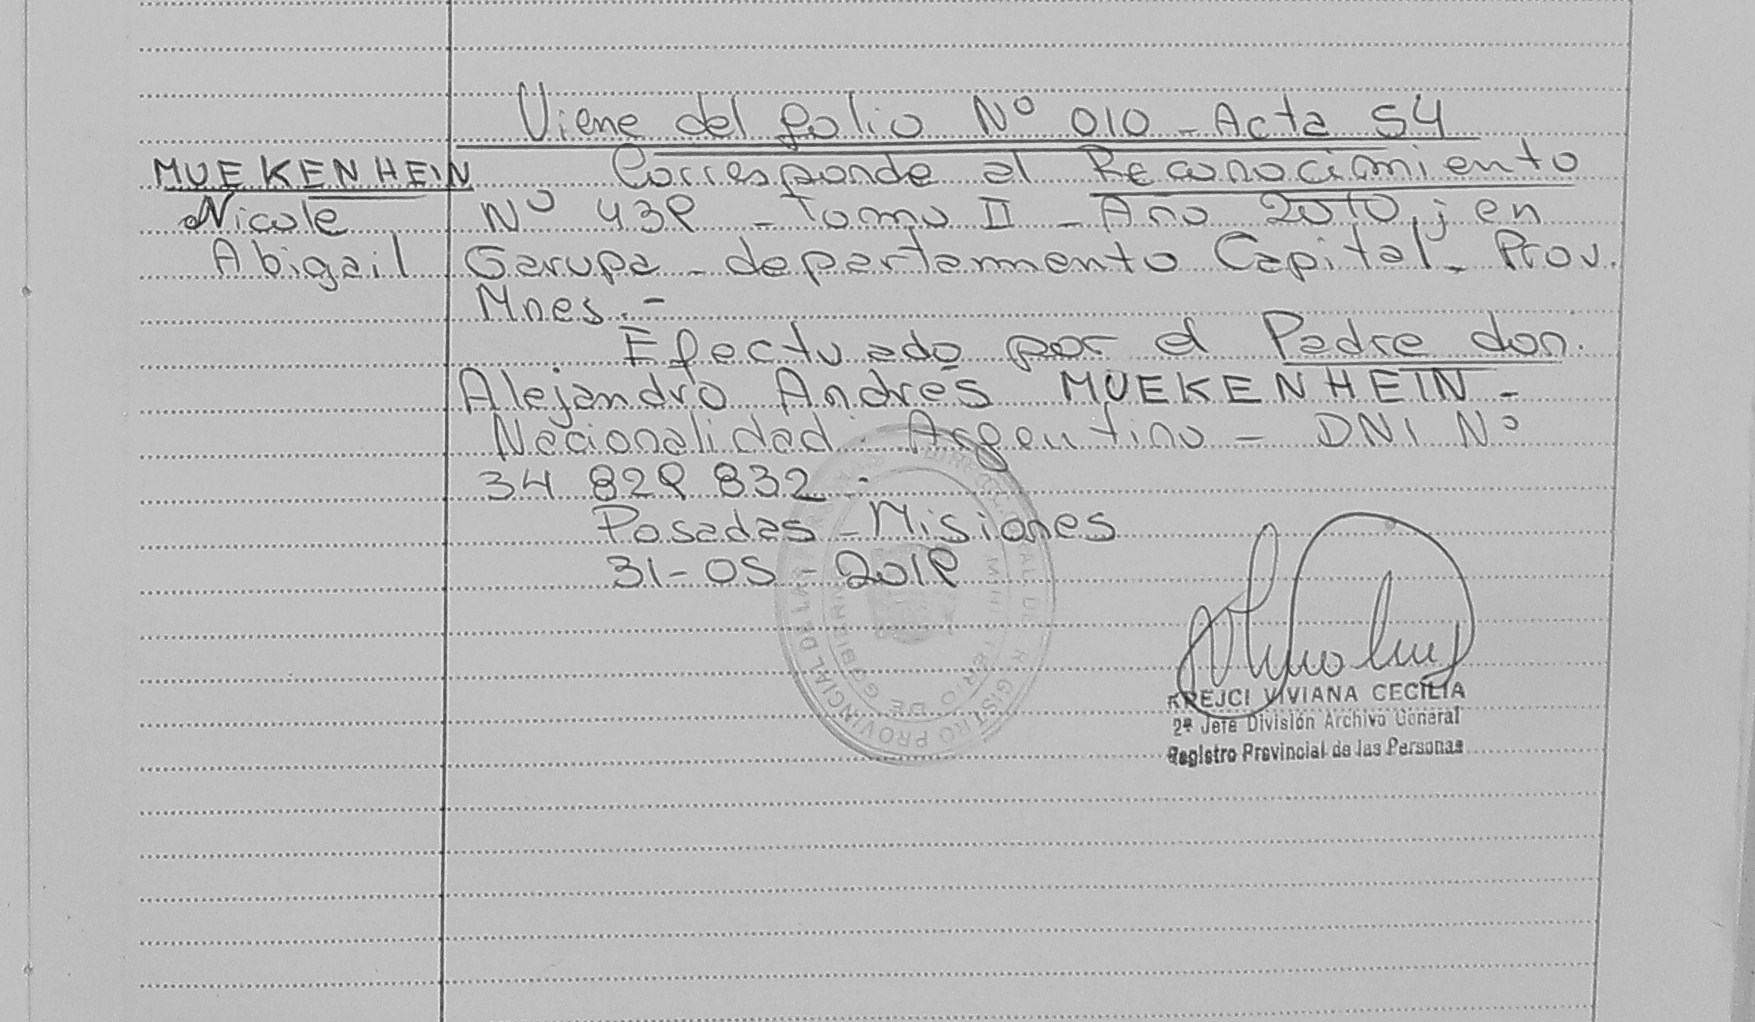 Viene del folio Nº 010 - Acta 54
MUEKENHEIN
Nicole
Abigail
Corresponde al Reconocimiento
Nº 439 - Tomo II - Año 2010, en
Garupa - departamento Capital - Prov.
Mnes.-
Efectuado por el Padre don.
Alejandro Andrés MUEKENHEIN -
Nacionalidad: Argentino - DNI Nº
34 829 832 -
Posadas - Misiones
31-05-2019
REGISTRO PROVINCIAL DE LAS PERSONAS
MINISTERIO DE GOBIERNO
KREJCI VIVIANA CECILIA
2º Jefe División Archivo General
Registro Provincial de las Personas